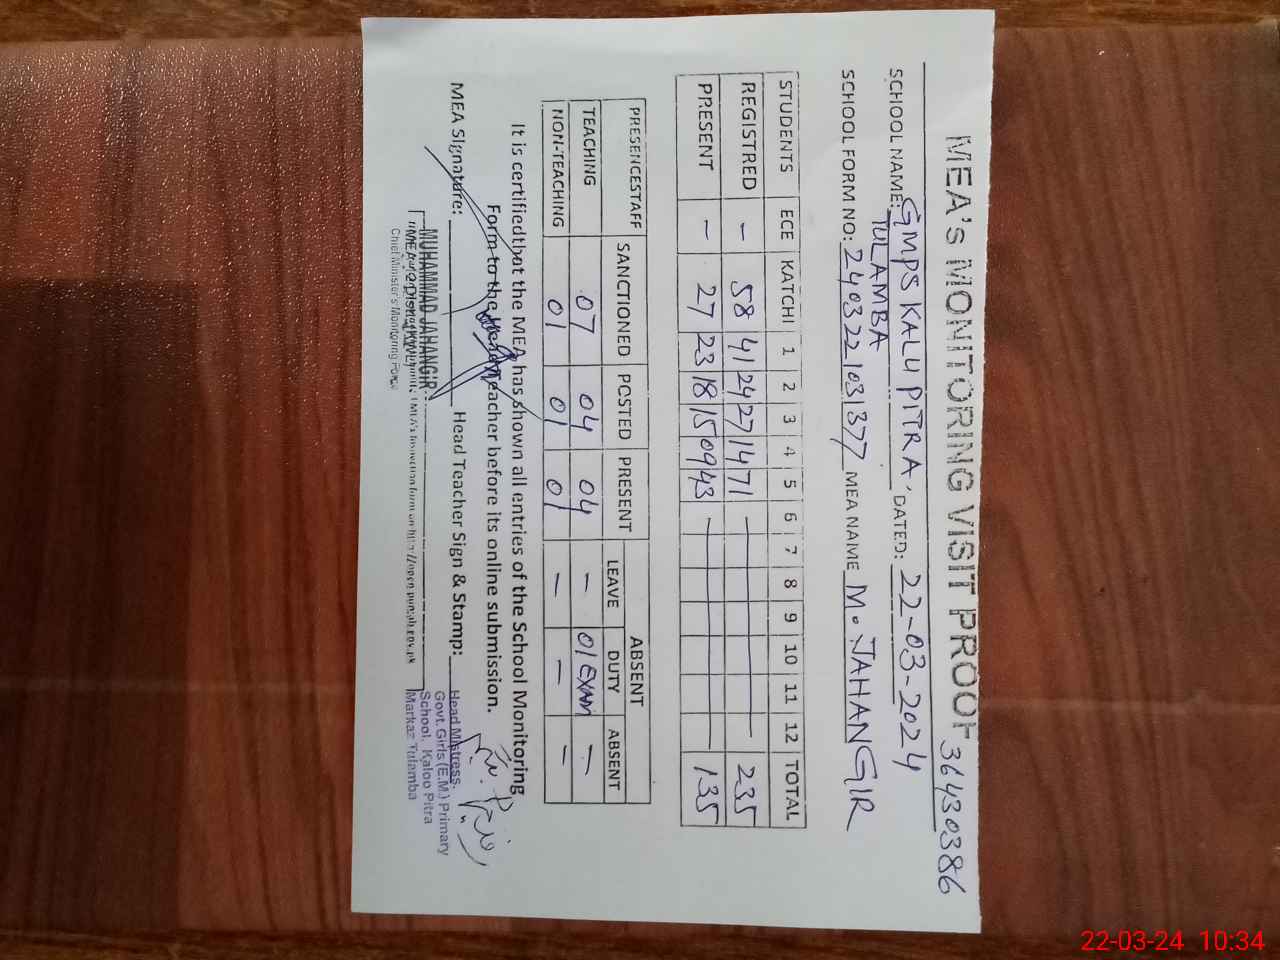 MEA's MONITORING VISIT PROOF 36430386
SCHOOL NAME: GMPS KALU PITRA, DATED: 22-03-2024
TULAMBA
SCHOOL FORM NO: 240322 1031377 MEA NAME M. JAHANGIR
STUDENTS ECE KATCHI 1 2 3 4 5 6 7 8 9 10 11 12 TOTAL
REGISTRED - 58 41 24 27 14 71 235
PRESENT - 27 23 18 15 09 43 135
PRESENCESTAFF SANCTIONED POSTED PRESENT ABSENT
LEAVE DUTY ABSENT
TEACHING 07 04 04 - 01 EXAM -
NON-TEACHING 01 01 01 - - -
It is certifiedthat the MEA has shown all entries of the School Monitoring
Form to the Head Teacher before its online submission.
MEA Signature: Head Teacher Sign & Stamp:
MUHAMMAD JAHANGIR
Chief Minister's Monitoring Force
Head Mistress.
Govt. Girls (E.M.) Primary
School, Kaloo Pitra
Markaz Tulamba
22-03-24 10:34